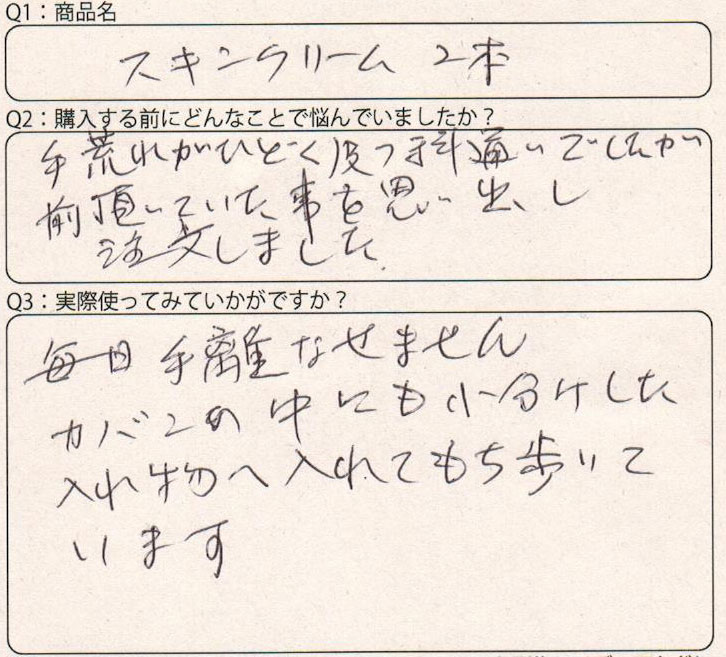 Q1：商品名
スキンクリーム 2本
Q2：購入する前にどんなことで悩んでいましたか？
手荒れがひどく皮フ科通いでしたが
前頂いていた事を思い出し
注文しました
Q3：実際使ってみていかがですか？
毎日手離なせません
カバンの中にも小分けした
入れ物へ入れてもち歩いて
います